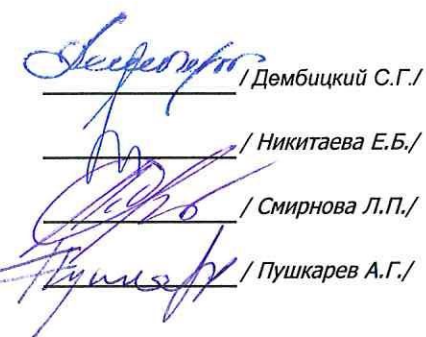 / Дембицкий С.Г./
/ Никитаева Е.Б./
/ Смирнова Л.П./
/ Пушкарев А.Г./